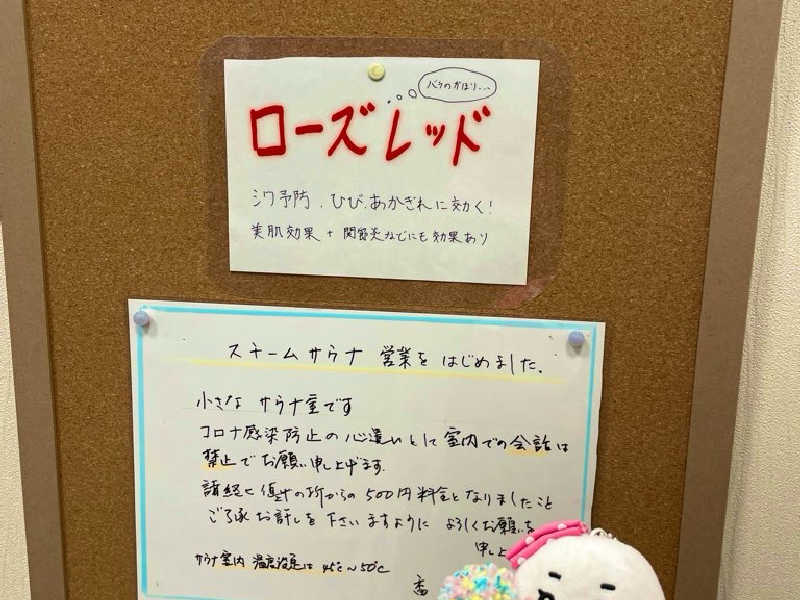 バラのかほり...
ローズレッド
シワ予防.ひび.あかぎれに効く!
美肌効果+関節炎などにも効果あり
スチームサウナ 営業を はじめました.
小さな サウナ室です
コロナ感染防止の心遣いとして室内での会話は
禁止で お願い申し上げます.
諸経
500円料金となりましたこと
ご了承お許しを下さいますように よろしくお願いを
申し上
サウナ室内 温度設定は 45℃〜50℃